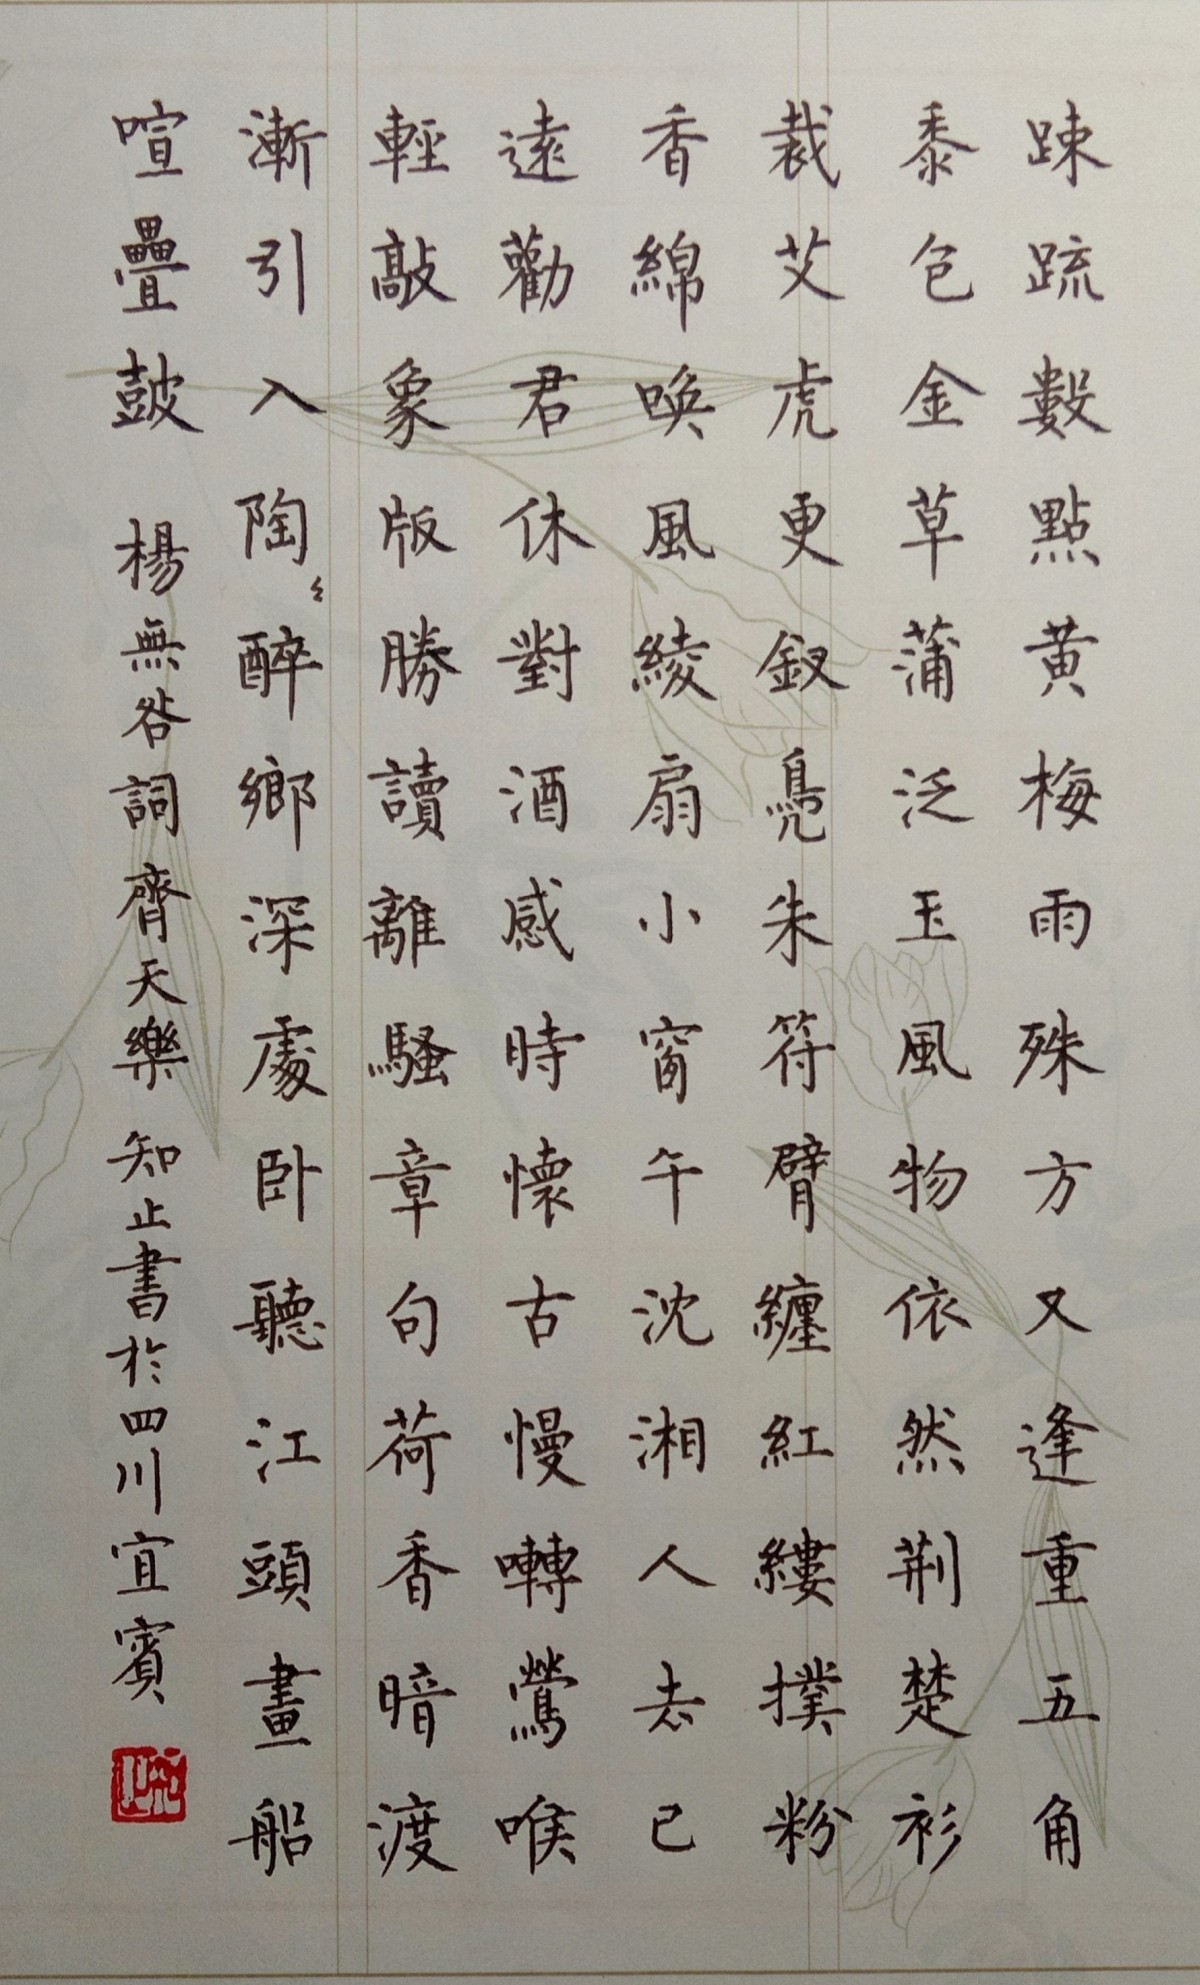 踈疏數點黄梅雨殊方又逢重五角
黍包金草蒲泛玉風物依然荆楚衫
裁艾虎更釵鳧朱符臂纏紅縷撲粉
香綿喚風綾扇小窗午沈湘人去已
遠勸君休對酒感時懷古慢囀鶯喉
輕敲象版勝讀離騷章句荷香暗渡
漸引入陶〻醉鄉深處卧聽江頭畫船
喧疊鼓 楊無咎詞齊天樂 知止書於四川宜賓